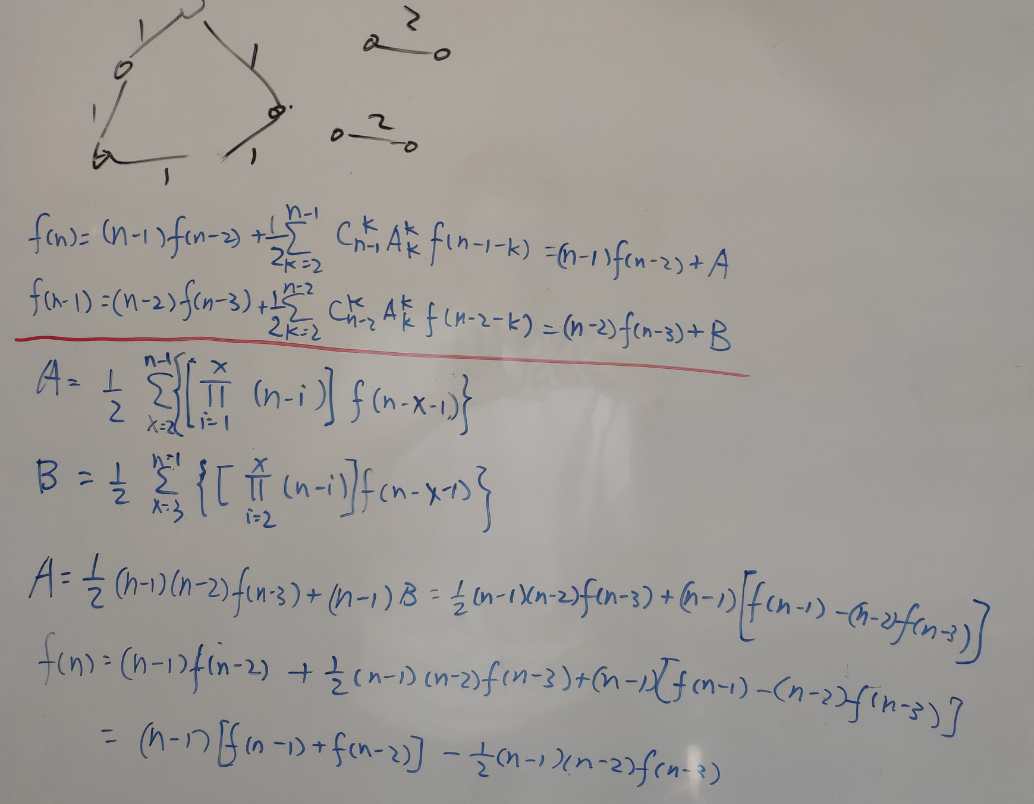 1 2
1
1 2
1
1
f(n)=(n-1)f(n-2)+\frac{1}{2}\sum_{k=2}^{n-1} C_{n-1}^{k} A_{k}^{k} f(n-1-k)=(n-1)f(n-2)+A
f(n-1)=(n-2)f(n-3)+\frac{1}{2}\sum_{k=2}^{n-2} C_{n-2}^{k} A_{k}^{k} f(n-2-k)=(n-2)f(n-3)+B
A=\frac{1}{2}\sum_{x=2}^{n-1}\{[\prod_{i=1}^{x}(n-i)]f(n-x-1)\}
B=\frac{1}{2}\sum_{x=3}^{n-1}\{[\prod_{i=2}^{x}(n-i)]f(n-x-1)\}
A=\frac{1}{2}(n-1)(n-2)f(n-3)+(n-1)B=\frac{1}{2}(n-1)(n-2)f(n-3)+(n-1)[f(n-1)-(n-2)f(n-3)]
f(n)=(n-1)f(n-2)+\frac{1}{2}(n-1)(n-2)f(n-3)+(n-1)[f(n-1)-(n-2)f(n-3)]
=(n-1)[f(n-1)+f(n-2)]-\frac{1}{2}(n-1)(n-2)f(n-3)